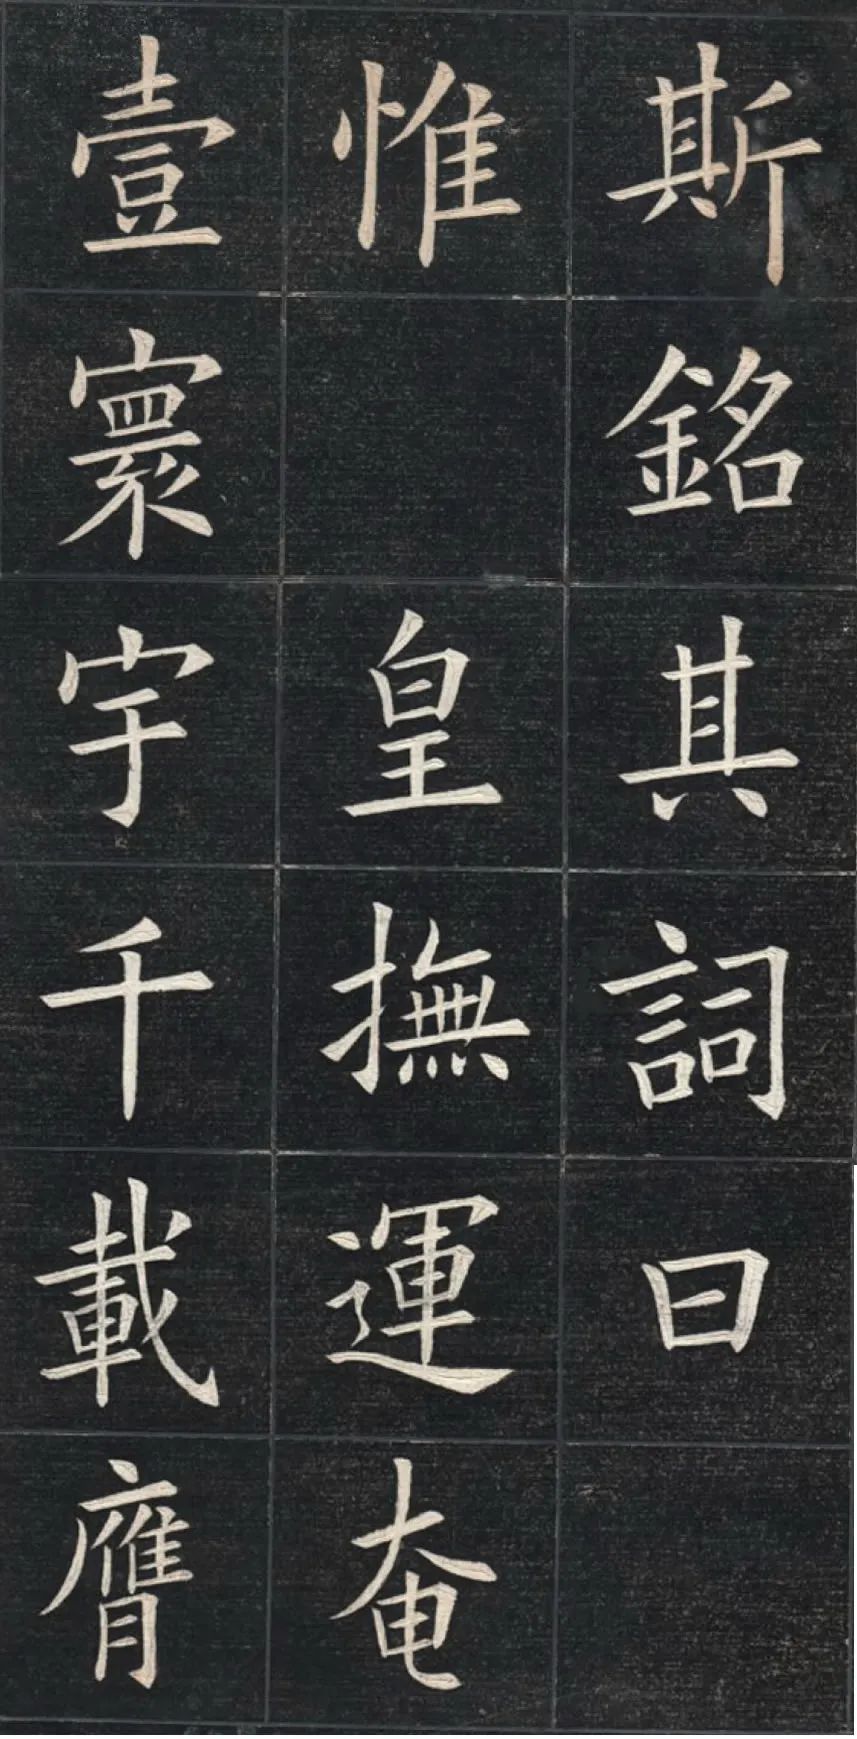 斯銘其詞曰
惟 皇撫運奄
壹寰宇千載膺